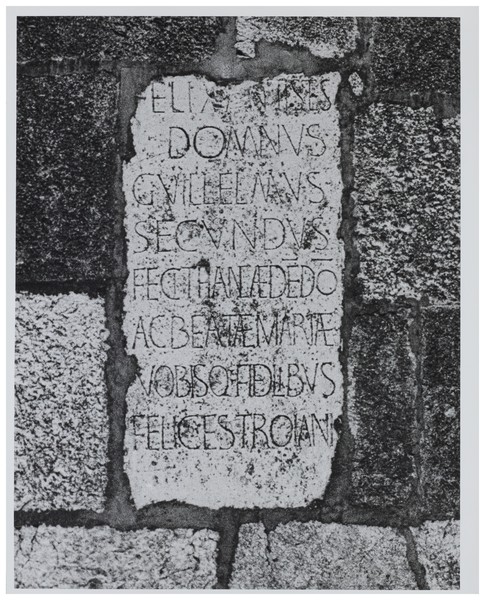 FELIX
DOMNVS
GVILLELMVS
SECVNDVS
FECIT HANC ÆDĒ DŌ
AC BEATÆ MARIÆ
VOBISQ FIDELIBVS
FELICES TROIANI